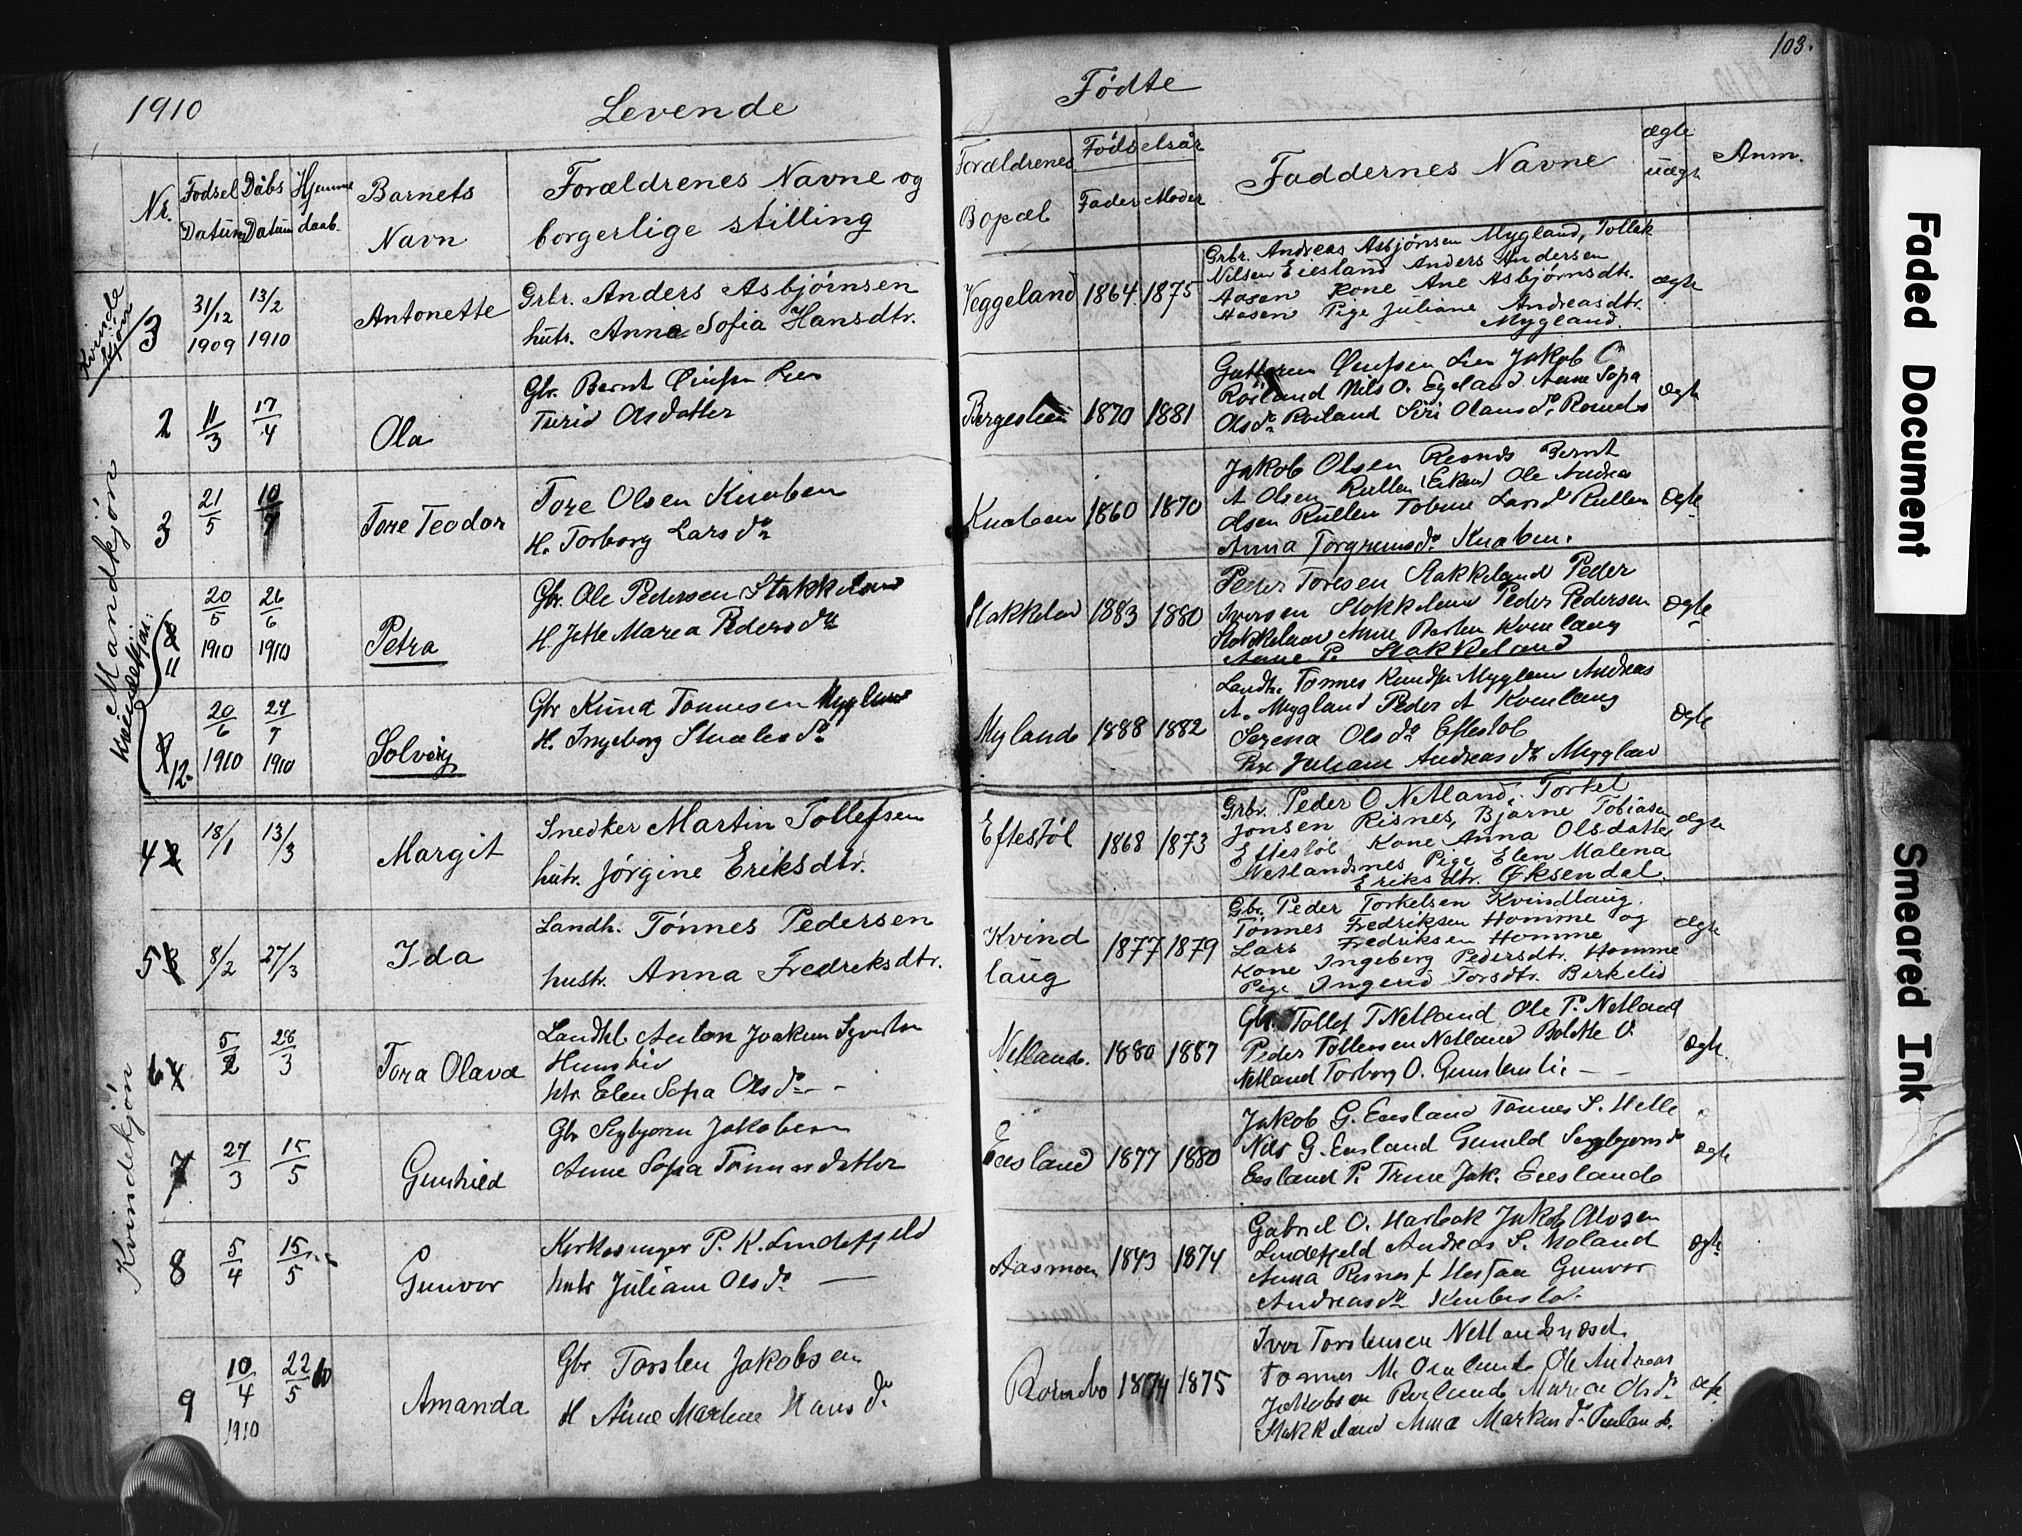 1910
Levende
Fødte
103.
Nr.
Fødsel Datum
Dåbs Datum
Hjemme daab.
Barnets Navn
Forældrenes Navne og borgerlige stilling
Forældrenes Bopæl
Fødselsår
Fader
Moder
Faddernes Navne
ægte uægt
Anm.
Kvinde kjøn
3
31/12 1909
13/2 1910
Antonette
Grbr. Anders Asbjørnsen
hutr. Anne Sofia Hansdtr.
Veggeland
1864
1875
Grbr. Andreas Asbjønsen Mygland, Tollak
Nilsen Eiesland Anders Andersen
Aasen Kone Ane Asbjørnsdtr.
Aasen Pige Juliane Andreasdtr.
Mygland.
ægte
Mandkjøn
2
11/3
17/4
Ola
Gbr. Bernt
Turid Olsdatter
1870
1881
Jakob
Røiland Nils O. Egeland Anne Sofia
Olsd. Røiland Siri Olausd.
ægte
3
21/5
10/7
Tore Teodor
Tore Olsen Knaben
H. Torborg Larsd.
Knaben
1860
1870
Jakob Olsen Bernt
A Olsen Rullen Ole Andreas
Olsen Rullen Rullen
Anna Knaben.
ægte
Kvindekjøn:
11
20/5 1910
26/6 1910
Petra
Gbr. Ole Pedersen Stakkeland
H. Jette Maria Pedersdtr
Stakkelan
1883
1880
Peder Toresen Stakkeland Peder
Iversen Stokkeland Peder Pedersen
Stokkeland Anne Kvenlaug
Anne P. Stakkeland
ægte
12.
20/6 1910
24/7 1910
Solveig
Gbr Knud Tønnesen Mygland
H. Ingeborg
Myland
1888
1882
Landh. Tønnes Mygland Andreas
A. Mygland Peder A Kvenlaug
Serena Olsd. Eftestøl
Pige Juliane Andreasd. Mygland
ægte
Kvindekjøn
4
18/1
13/3
Margit
Snedker Martin Tollefsen
hutr. Jørgine Eriksdtr.
Eftestøl
1868
1873
Grbr. Peder O Netland, Torkel
Jonsen Risnes, Bjarne Tobiasen
Eftestøl Kone Anna Olsdatter
Netlandsnes Pige Elen Malena
Eriksdtr. Øksendal.
ægte
5
8/2
27/3
Ida
Landh. Tønnes Pedersen
hustr. Anna Fredriksdtr.
Kvind
laug
1877
1879
Gbr. Peder Torkelsen Kvindlaug.
Tønnes Fredriksen Homme og
Lars Fredriksen Homme
Kone Ingeberg Pedersdtr. Homme
Pige Ingerid Torsdtr. Birkelid
ægte
6
5/2
28/3
Tora Olava
Anton Joakim
htr Elen Sofia Olsd.
Netland.
1880
1887
Gbr Tollef T Netland Ole P. Netland
Peder Tollevsen Netland Bolette O.
Netland Torborg O.
ægte
7
27/3
15/5
Gunhild
Gbr Segbjørn Jakobsen
Anne Sofia Tønnesdatter
Eiesland
1877
1880
Jakob G. Eiesland Tønnes S. Helle
Nils G. Eiesland Gunild Segbjørnsd
Eiesland P. Trine Jak. Eiesland
ægte
8
5/4
15/5
Gunvor
Kirkesanger P. K. Lindefjeld
hutr Juliane Olsd.
Aasmon
1843
1874
Gabriel O. Jakob Olvsen
Lindefjeld Andreas S. Moland
Anna Risnes Gunvor
Andreasdtr
ægte
9
10/4 1910
22/5 10
Amanda
Gbr. Torsten Jakobsen
H Anne Martine Hansd.
Rørnebo
1874
1875
Iver Torstensen Netlandsnæset.
Tønnes M. Ole Andreas
Jakobsen Røiland Maria Olsd.
Stakkeland Anna
Faded Document
Smeared Ink